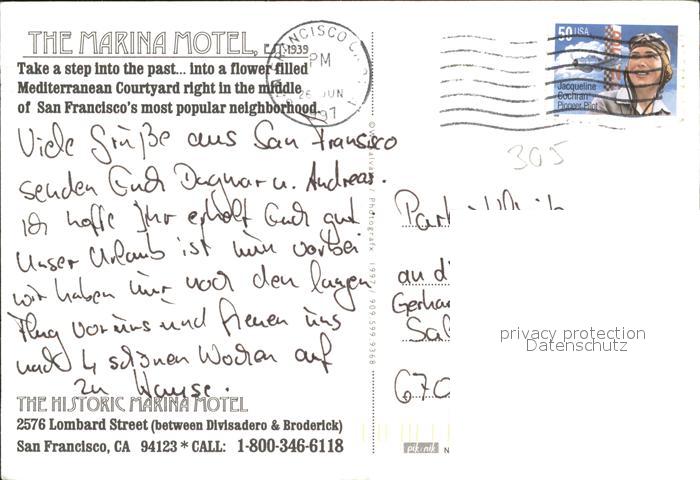 THE MARINA MOTEL, EST. 1939
Take a step into the past... into a flower filled
Mediterranean Courtyard right in the middle
of San Francisco's most popular neighborhood.
Viele Grüße aus San Fransisco
senden Euch Dagmar u. Andreas.
Ich hoffe Ihr erholt Euch gut
Unser Urlaub ist nun vorbei
wir haben nur noch den langen
Flug vor uns und freuen uns
nach 4 schönen Wochen auf
zu Hause.
THE HISTORIC MARINA MOTEL
2576 Lombard Street (between Divisadero & Broderick)
San Francisco, CA 94123 * CALL: 1-800-346-6118
FRANCISCO C
PM
26 JUN
1997
Photografx 1997 / 909-599-9368
50 USA
Jacqueline
Cochran
Pioneer Pilot
305
an d
Gerhar
670
privacy protection
Datenschutz
piknik N